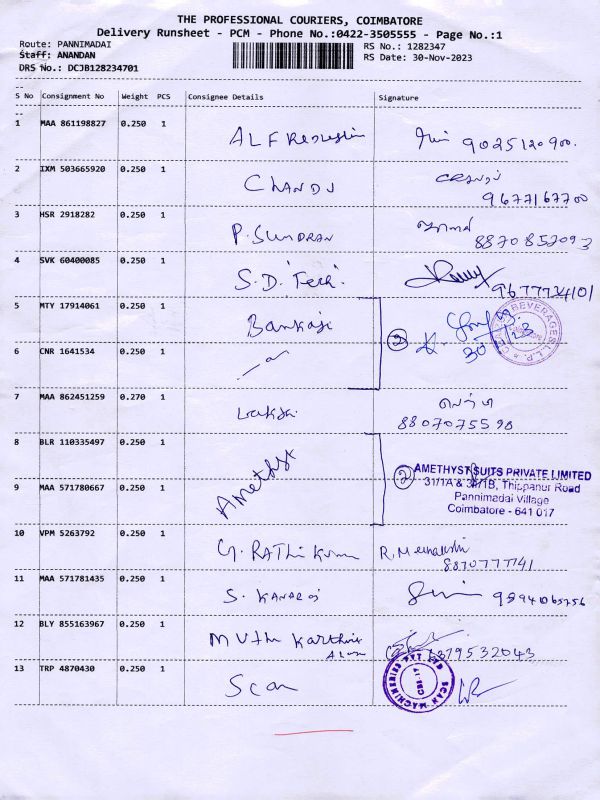 THE PROFESSIONAL COURIERS, COIMBATORE
Delivery Runsheet - PCM - Phone No.:0422-3505555 - Page No.:1
Route: PANNIMADAI
RS No.: 1282347
Staff: ANANDAN
RS Date: 30-Nov-2023
DRS No.: DCJB128234701
S No Consignment No Weight PCS Consignee Details Signature
1 MAA 861198827 0.250 1 ALF 9025120900.
2 IXM 503665920 0.250 1 CHANDU
9677167700
3 HSR 2918282 0.250 1 P. SUNDRAN
8870852093
4 SVK 60400085 0.250 1 S.D. Tech.
9677734101
5 MTY 17914061 0.250 1
2
30/11/23
BEVERAGES L.L.P.
6 CNR 1641534 0.250 1
7 MAA 862451259 0.270 1
8807075590
8 BLR 110335497 0.250 1 Amethyst
2 AMETHYST SUITS PRIVATE LIMITED
31/1A & 31/1B, Thippanur Road
9 MAA 571780667 0.250 1
Pannimadai Village
Coimbatore - 641 017
10 VPM 5263792 0.250 1 G. RAThi Kumar R. Meenakshi
8870777741
11 MAA 571781435 0.250 1 S. KANARAJ
12 BLY 855163967 0.250 1 MUthu Karthik
6379532043
13 TRP 4870430 0.250 1 Scan
SCAN MACHINERIES PVT LTD
CBE-17